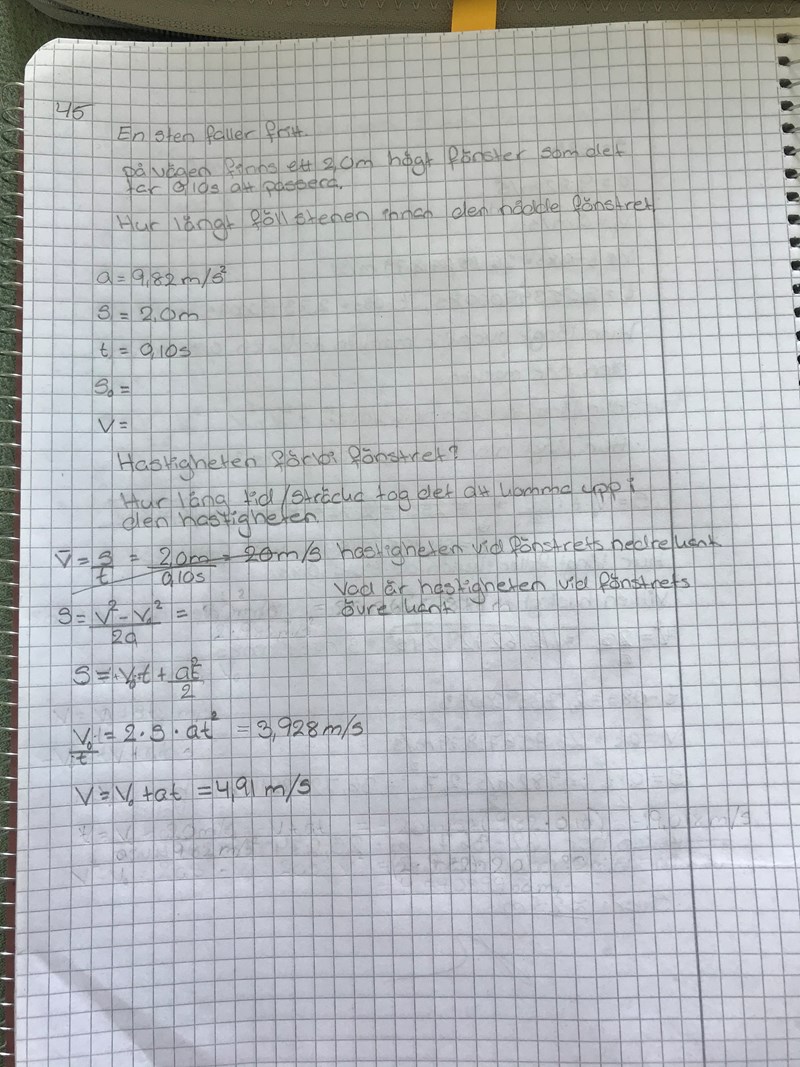 45
En sten faller fritt.
på vägen finns ett 2,0m högt fönster som det
tar 0,10s att passera.
Hur långt föll stenen innan den nådde fönstret
a = 9,82 m/s²
s = 2,0m
t = 0,10s
s₀ =
v =
Hastigheten förbi fönstret?
Hur lång tid/sträcka tog det att komma upp i
den hastigheten
v̄ = s/t = 2,0m/0,10s = 20m/s hastigheten vid fönstrets nedre kant
Vad är hastigheten vid fönstrets
övre kant
s = (v² - v₀²)/2a =
s = v₀t + at²/2
v₀/t = 2·s·at² = 3,928 m/s
v = v₀ + at = 4,91 m/s